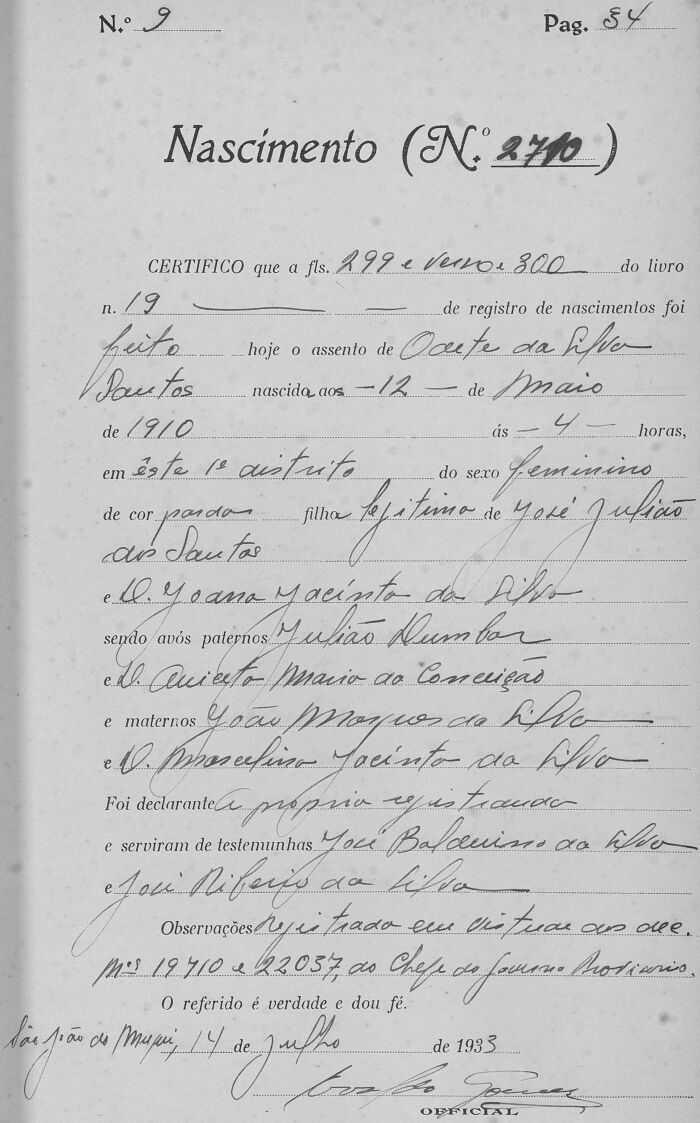 N.º 9 Pag. 34
Nascimento (N.º 2710)
CERTIFICO que a fls. 299 e verso e 300 do livro
n. 19 — — de registro de nascimentos foi
feito hoje o assento de Odete da Silva
Santos nascida aos - 12 - de Maio
de 1910 ás - 4 - horas,
em êste 1º distrito do sexo feminino
de cor parda filha legitima de José Julião
dos Santos
e D. Joana Jacinta da Silva
sendo avós paternos Julião
e D. Maria da Conceição
e maternos João Marques da Silva
e D. Marcelina Jacinta da Silva
Foi declarante a propria registranda
e serviram de testemunhas José Balduino da Silva
e José Ribeiro da Silva
Observações Registrado em virtude dos dec.
Nºs 19710 e 22037, do Chefe do Governo Provisorio.
O referido é verdade e dou fé.
São João do 14 de Julho de 1933
OFFICIAL